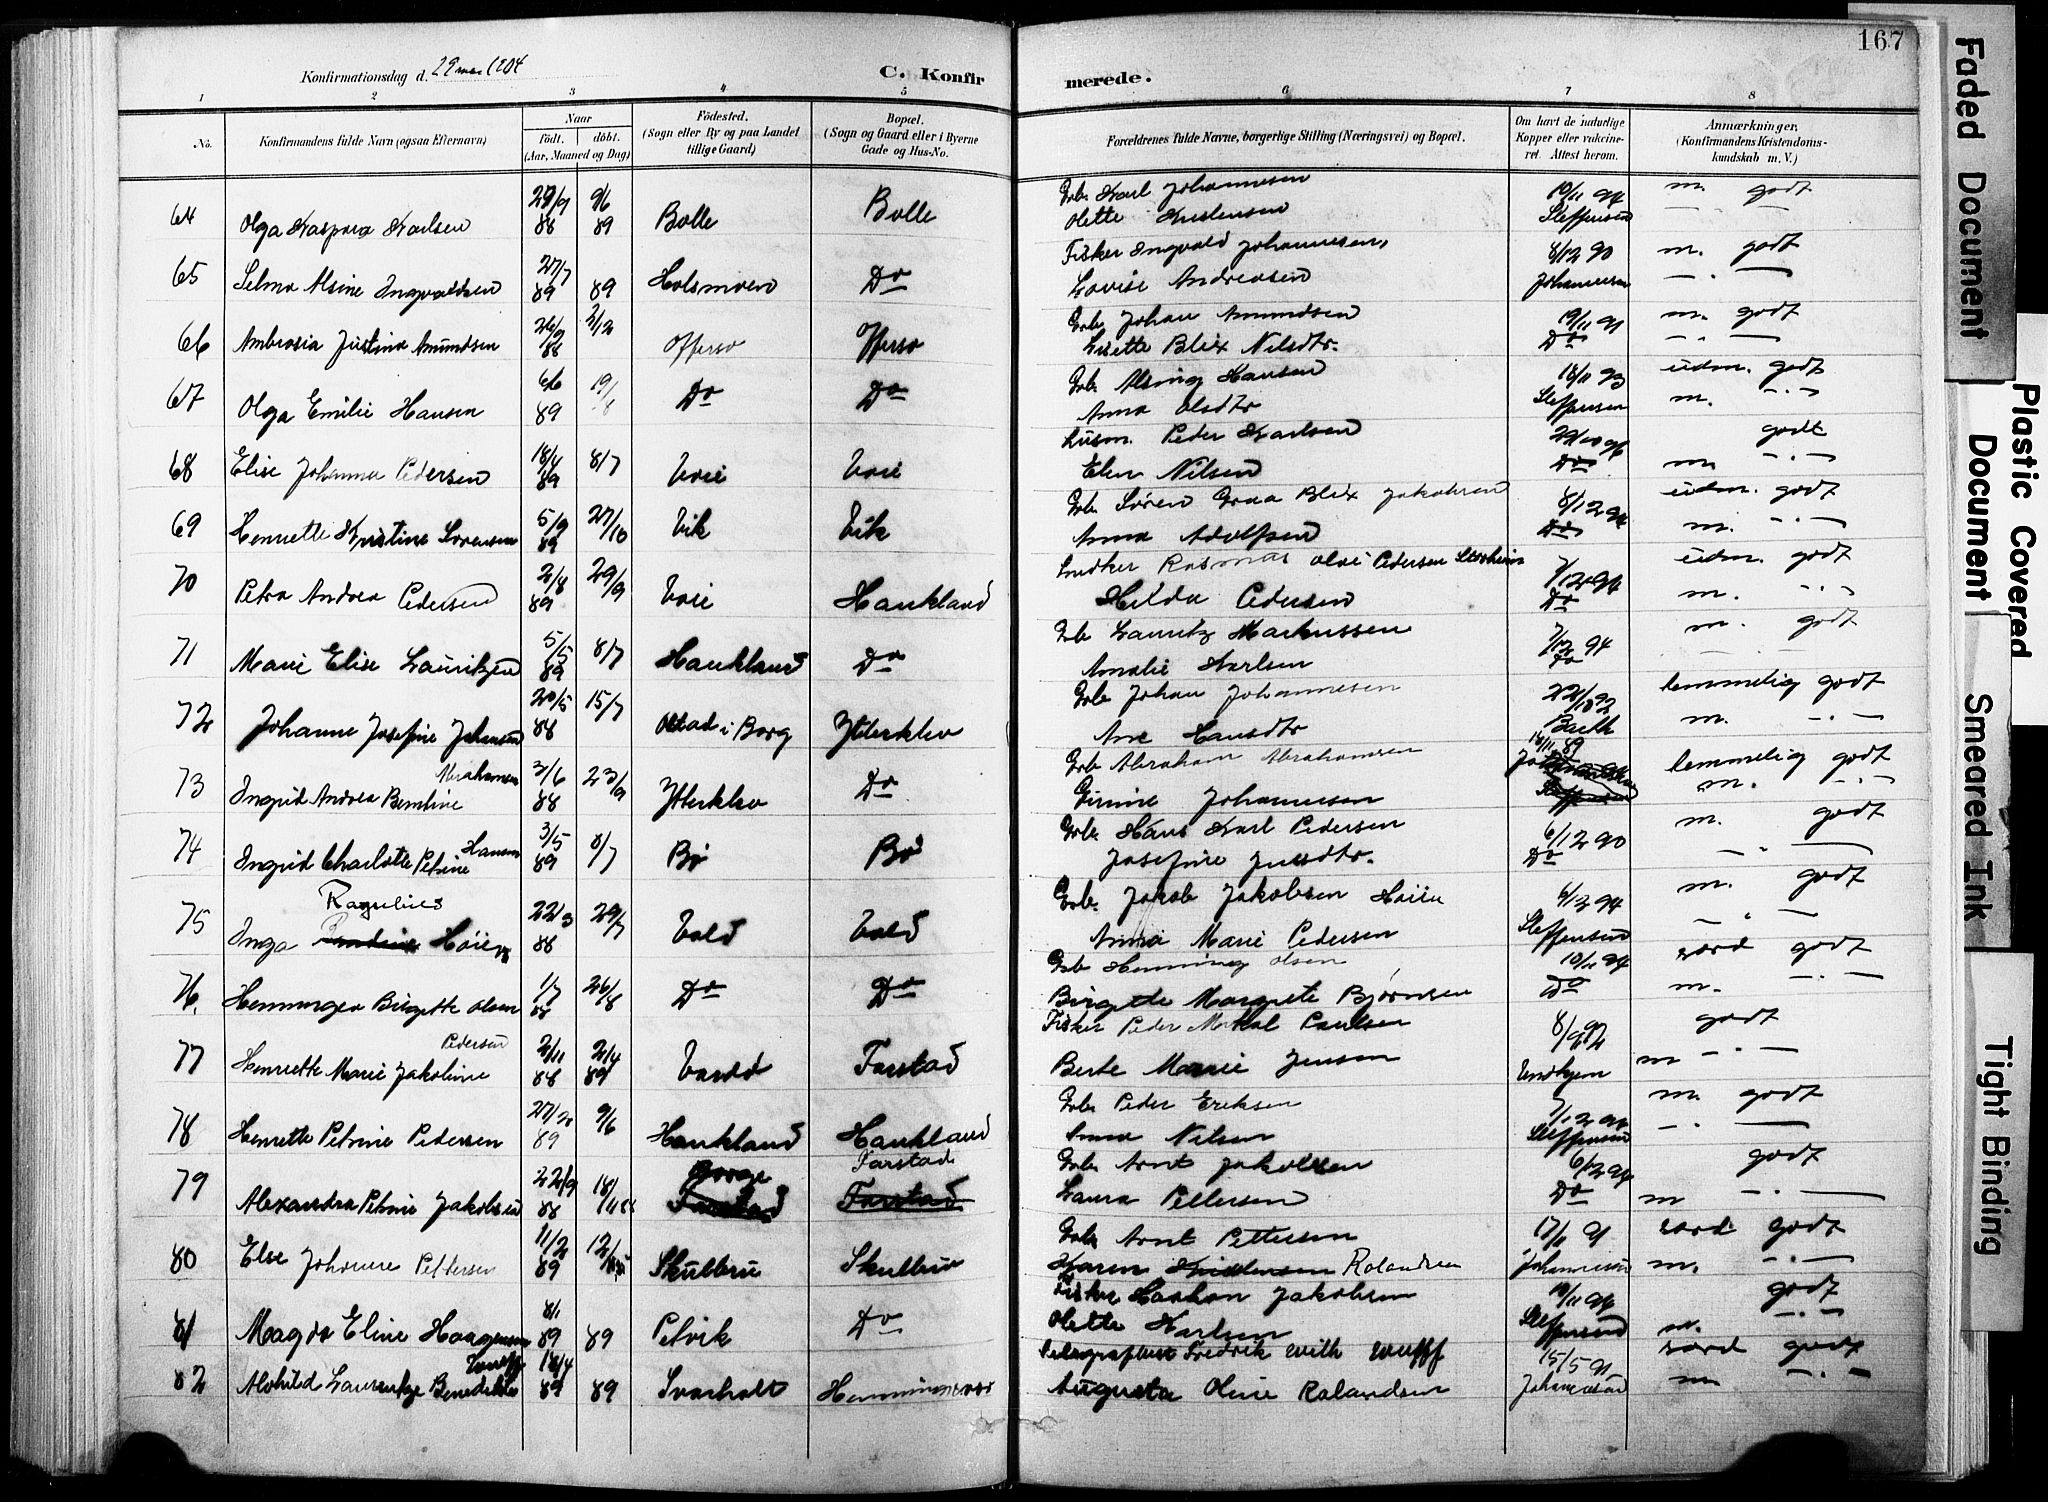 167
Konfirmationsdag d. 29 mai 1904
C. Konfirmerede.
1 2 3 4 5 6 7 8
No.
Konfirmandens fulde Navn (ogsaa Efternavn)
Naar
født. døbt.
(Aar, Maaned og Dag)
Fødested.
(Sogn eller By og paa Landet
tillige Gaard)
Bopæl.
(Sogn og Gaard eller i Byerne
Gade og Hus-No.
Forældrenes fulde Navne, borgerlige Stilling (Næringsvei) og Bopæl.
Om havt de naturlige
Kopper eller vaccine-
ret. Attest herom.
Anmærkninger.
(Konfirmandens Kristendoms-
kundskab m. V.)
64 Olga Kaspara Karlsen 88 9/6 89 Bolle Bolle Grb. Karl Johannesen 19/11 94 m. godt
Olette Kristensen Steffensen
65 Selma Alsine Ingvaldsen 27/7 89 89 Holsmoen Do Fisker Ingvald Johannesen, 8/12 90 m. godt
Lovise Andreasen Johannesen
66 Ambrosia Justina Amundsen 26/9 88 2/12 Offersø Offersø Grb. Johan Amundsen 19/11 91 m. godt
Lisette Blix Nilsdtr. Do
67 Olga Emilie Hansen 6/6 89 Do Do Grb. Alsing Hansen 18/11 93 udm. godt
Anna Olsdtr Steffensen m.
68 Elise Johanna Pedersen 18/4 89 8/7 Voie Voie Husm. Peder Karlsen godt
Elen Nilsen Do m.
69 Henriette Kristine Sørensen 5/9 89 27/10 Vik Vik Grb. Søren Graa Blix Jakobsen 8/12 94 udm. godt
Anna Adolfsen Do m.
70 Petra Andrea Pedersen 2/8 89 29/9 Voie Haukland Snedker Rasmus Olai Pedersen 7/12 94 udm. godt
Hilda Pedersen Do m.
71 Marie Elise Lauritzen 5/5 89 8/7 Haukland Do Grb Lauritz Markussen 7/12 94 m. godt
Amalie Karlsen Do
72 Johanne Josefine Johansen 20/5 88 15/7 Ostad i Borg Ytterklev Grb. Johan Johannesen temmelig godt
Ane Hansdtr m.
73 Ingrid Andrea Berntine Abrahamsen 3/6 88 23/9 Ytterklev Do Grb Abraham Abrahamsen 89 temmelig godt
Girine Johannesen m.
74 Ingrid Charlotte Petrine Hansen 3/5 89 8/7 Bø Bø Grb. Hans Karl Pedersen 6/12 90 m. godt
Josefine Jensdtr. Do
75 Inga Ragulius Høiin 22/3 88 29/7 Vold Vold Grb. Jakob Jakobsen Høiin 6/12 94 m. godt
Anna Marie Pedersen Steffensen
76. Henningea Birgitte Olsen 1/7 88 26/8 Do Do Grb Henning Olsen 10/11 94 særd godt
Birgitte Margrete Bjørnsen Do m.
77 Henriette Marie Jakobine Pedersen 2/11 88 2/4 89 Farstad Fisker Peder Paulsen 92 godt
Berte Marie Jensen m
78 Henrette Petrine Pedersen 89 9/6 Haukland Haukland Grb. Peder Eriksen m. godt
Anna Nilsen Steffensen
79 Alexandra Petrine Jakobsen 22/9 88 18/11 88 Borge Farstad Farstad Farstad Grb. Arnt Jakobsen 6/12 94 godt
Laura Pettersen Do m
80 Else Johanne Pettersen 11/2 89 Skulbru Skulbru Grb. Arnt Pettersen særd godt
Karen Kristensen Rolandsen Johannesen m.
81 Magda Eline Haagensen 8/1 89 89 Petvik Do Fisker Haakon Jakobsen 10/11 94 godt
Olette Karlsen Steffensen m.
82 Alvhild Laurentze Benedikte 18/4 89 89 Svarholt Henningsvær Fredrik With 15/5 91 særd godt
Augusta Oline Rolandsen Johannesen m
Faded Document
Plastic Covered
Document
Smeared Ink
Tight Binding